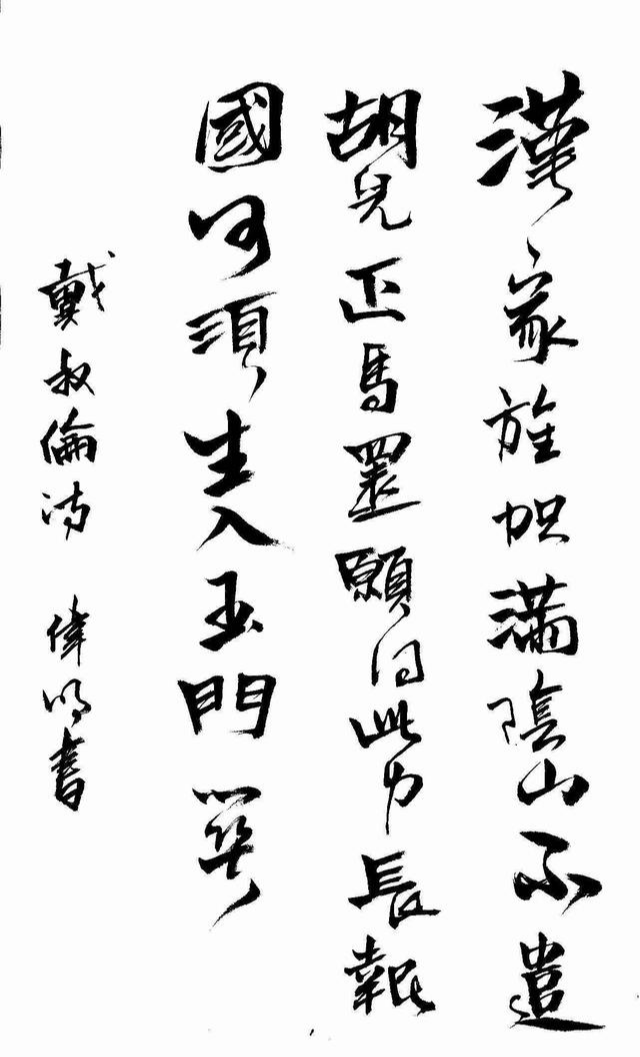 漢家旌帜滿陰山不遣
胡兒匹馬還願得此身長報
國何須生入玉門關
戴叔倫詩 偉明書